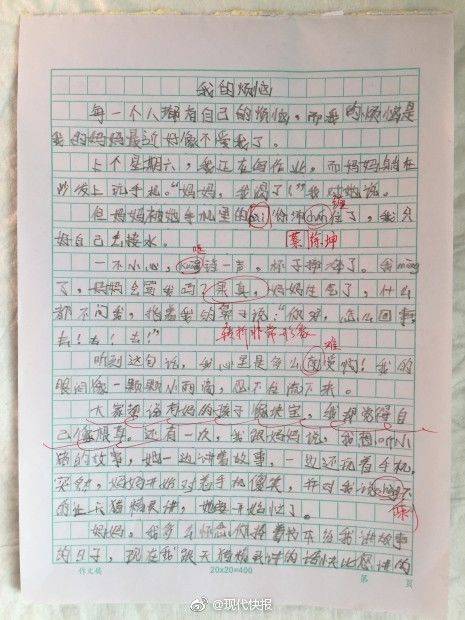 我的烦恼
每一个人都有自己的烦恼，而我的烦恼是
我的妈妈最近好像不爱我了。
上个星期六，我正在写作业，而妈妈躺在
沙发上玩手机。“妈妈，我渴了！”我对她说。
但妈妈被她手机里的
住了，我只
缠
好自己去接水。
蔡徐坤
一不小心，
一声，杯子摔碎了。我
了，妈妈会骂我吗？果真，妈妈生气了，什么
都不问我，指着我的鼻子说：“你呀，怎么回事，
去！去！去！”
转折非常形象
难
听到这句话，我心里是多么
受啊！我的
眼泪像一颗颗小雨滴，忍不住流下来。
大家都说有妈的孩子像块宝，我却觉得自
己像根草。还有一次，我跟妈妈说，我想听小
猪的故事，她一边讲着故事，一边还玩着手机，
突然，妈妈开始对着手机傻笑，并对我说
让天猫精灵讲，她
妈妈，我多么怀念你捧着书本给我讲故事
的日子，现在我跟天猫精灵讲的话
比跟您讲的
作文稿
20×20=400
第 页
@现代快报